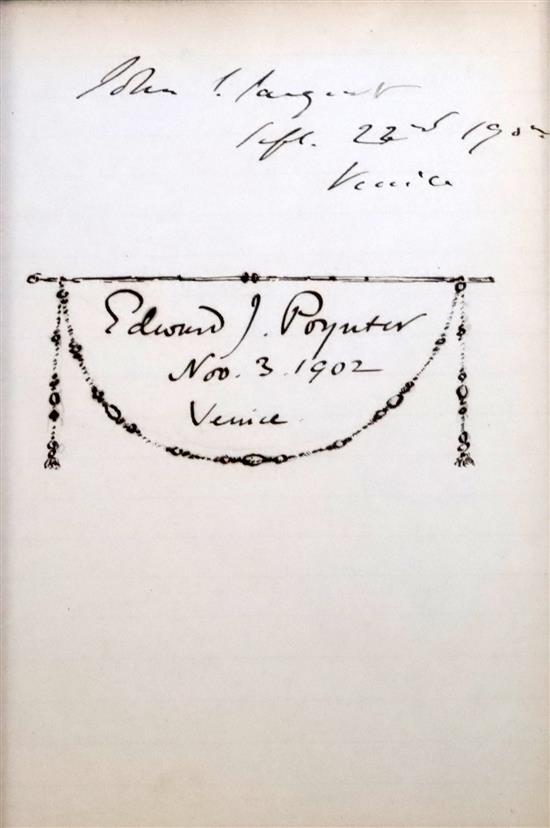 John S. Sargent
Sept. 22nd 1902
Venice
Edward J. Poynter
Nov. 3. 1902
Venice